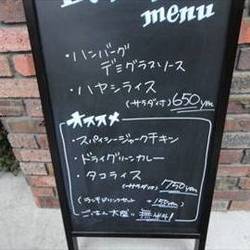 menu
・ハンバーグ
デミグラスソース
・ハヤシライス
(サラダ付) 650yen
オススメ
・スパイシージャークチキン
・ドライグリーンカレー
・タコライス
(サラダ付) 750yen
(ランチドリンクセット +150yen)
ごはん大盛 無料!